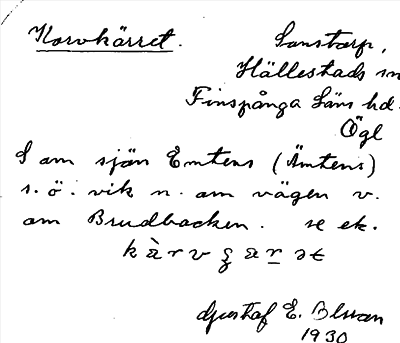 Korvkärret.
Sonstorp,
Hällestads sn
Finspånga läns hd.
Ögl
S om sjön Emtens (Ämtens)
s.ö. vik n. om vägen v.
om Brudbacken. se ek.
Gustaf E. Blman
1930